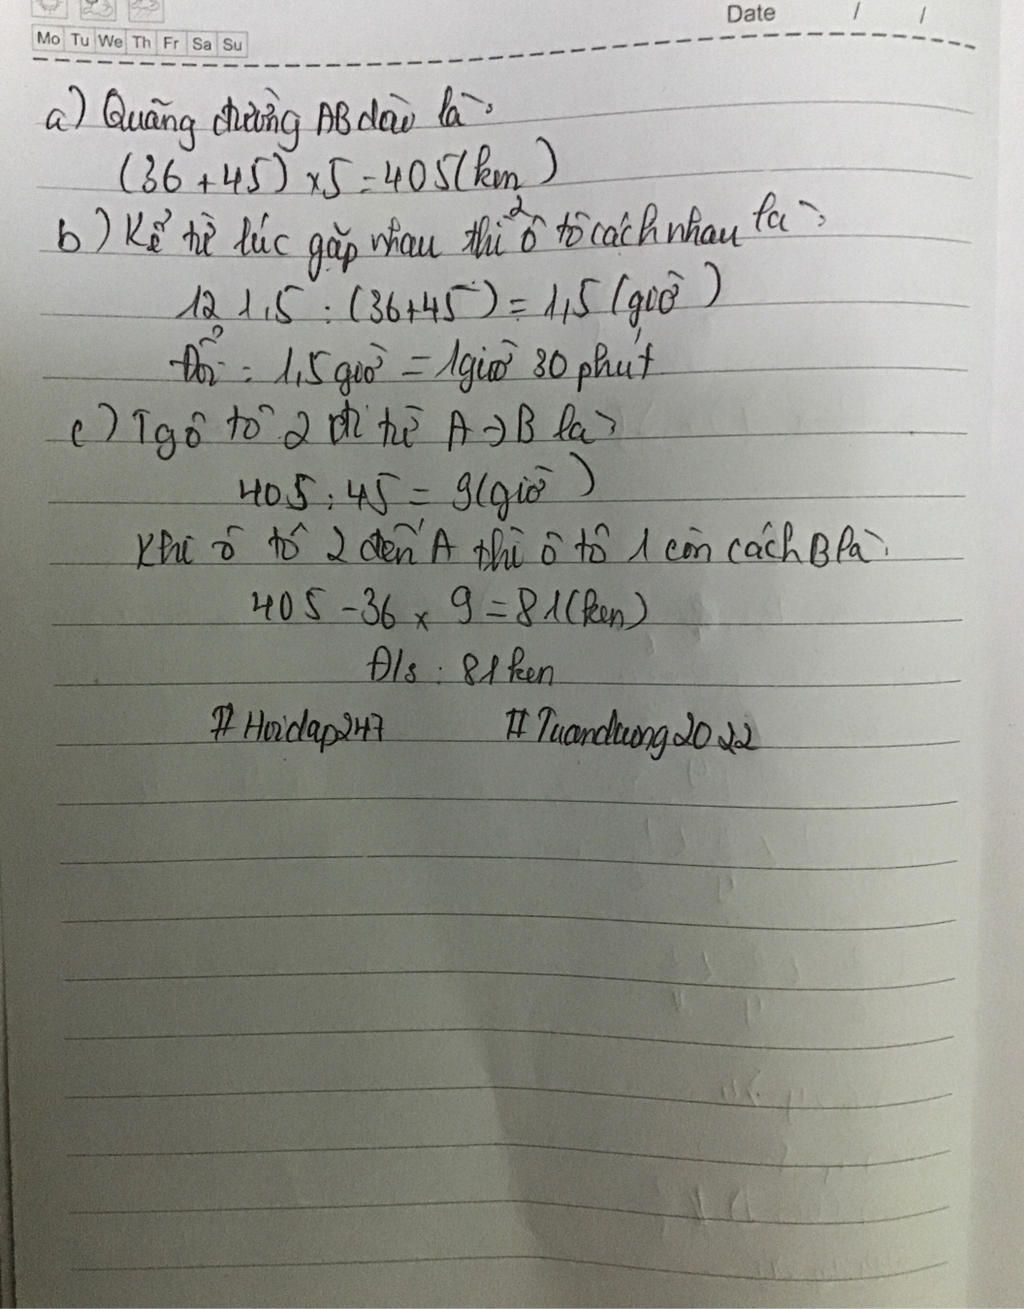 Date / /
Mo Tu We Th Fr Sa Su
a) Quãng đường AB dài là:
(36 + 45) x 5 = 405 (km)
b) Kể từ lúc gặp nhau thì 2 ô tô cách nhau là:
121,5 : (36+45) = 1,5 (giờ)
Đổi: 1,5 giờ = 1 giờ 30 phút
c) Tg ô tô 2 đi từ A → B là:
405 : 45 = 9 (giờ)
Khi ô tô 2 đến A thì ô tô 1 còn cách B là:
405 - 36 x 9 = 81 (km)
Đ/s : 81 km
#Hoidap247 #Tuanduong2022